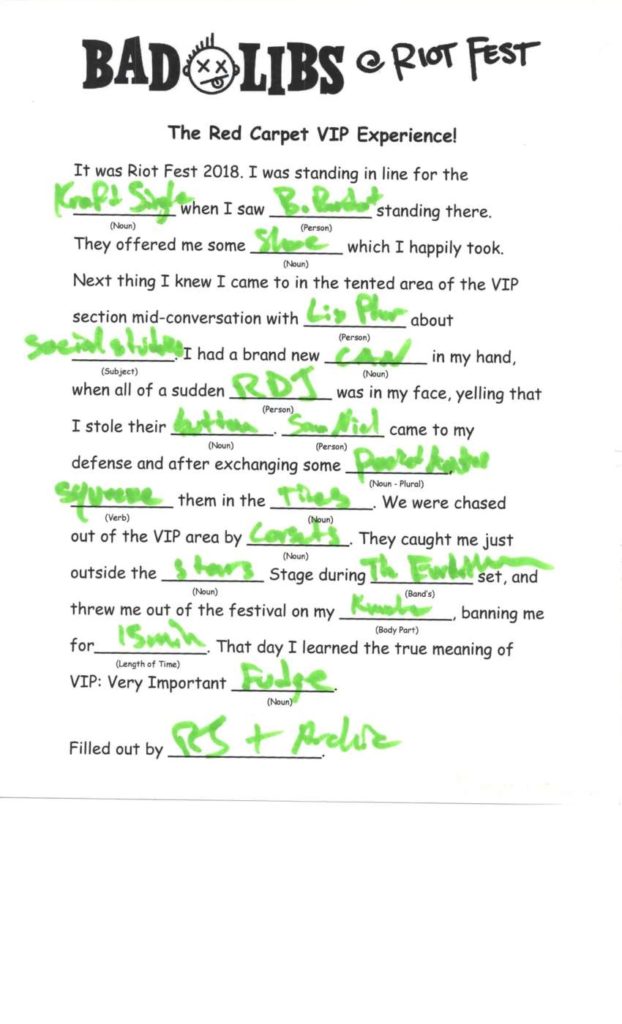 BAD LIBS @ RIOT FEST
The Red Carpet VIP Experience!
It was Riot Fest 2018. I was standing in line for the
Kraft Single when I saw B. Bardot standing there.
(Noun) (Person)
They offered me some Shoe which I happily took.
(Noun)
Next thing I knew I came to in the tented area of the VIP
section mid-conversation with Liz Phar about
(Person)
Social studies. I had a brand new CAN in my hand,
(Subject) (Noun)
when all of a sudden RDJ was in my face, yelling that
(Person)
I stole their button. Sam Niel came to my
(Noun) (Person)
defense and after exchanging some
(Noun - Plural)
squeeze them in the Tires. We were chased
(Verb) (Noun)
out of the VIP area by Corsets. They caught me just
(Noun)
outside the stars Stage during The set, and
(Noun) (Band's)
threw me out of the festival on my, banning me
(Body Part)
for 15 min. That day I learned the true meaning of
(Length of Time)
VIP: Very Important Fudge.
(Noun)
Filled out by RJ + Archie.